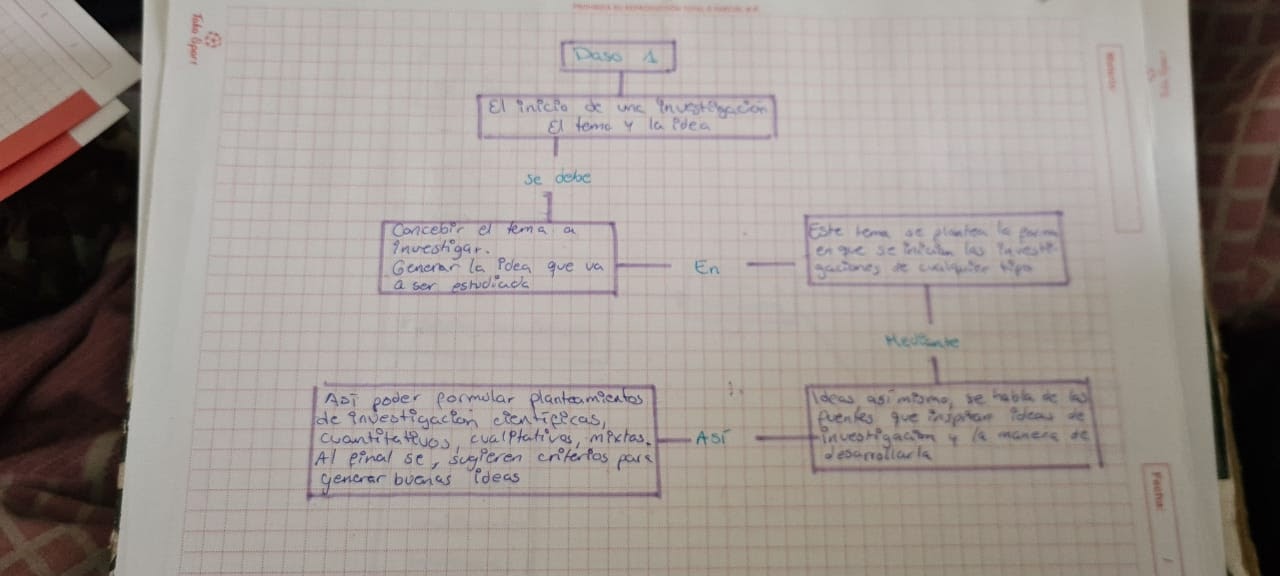 Paso 1
El inicio de una investigación
El tema y la idea
se debe
Concebir el tema a
investigar.
Generar la idea que va
a ser estudiada
En
Este tema se plantea la forma
en que se inician las investi-
gaciones de cualquier tipo
Mediante
Ideas así mismo, se habla de las
fuentes que inspiran ideas de
investigación y la manera de
desarrollarla
Así
Así poder formular planteamientos
de investigación científicas,
cuantitativos, cualitativos, mixtas.
Al final se, sugieren criterios para
generar buenas ideas
Fecha: